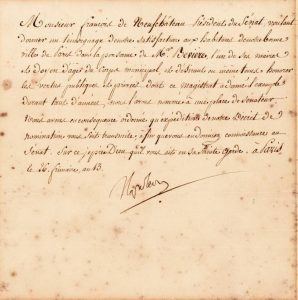 Monsieur françois de Neufchateau Président du Sénat, voulant
donner un témoignage de notre satisfaction aux habitans de notre bonne
ville de Paris dans la personne de Mr. Bévière, l'un de ses maires
et Doyen d'age du Corps municipal, et désirant en même tems honorer
les vertus publiques et privées dont ce magistrat a donné l'exemple
durant tant d'années, nous l'avons nommé à une place de Sénateur.
Nous avons en conséquence ordonné qu'expédition de notre Décret de
nomination vous fut transmise, afin que vous en donniez connaissance au
Sénat. Sur ce je prie Dieu qu'il vous ait en sa Sainte Garde. à Paris
le 26 frimaire, an 13.
Napoléon